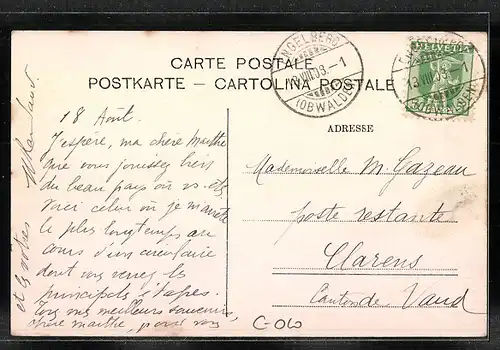 CARTE POSTALE
POSTKARTE – CARTOLINA POSTALE
ENGELBERG
18.VIII.09.–1
(OBWALDEN)
HELVETIA
ADRESSE
18 Août.
J'espère, ma chère Marthe
que vous jouissez bien
du beau pays où vs. êtes
Voici celui où je m'arrête
le plus longtemps au
cours d'un circulaire
dont vous verrez les
principales étapes.
Tous mes meilleurs souvenirs,
chère Marthe, pour vous
et les vôtres
Mademoiselle M. Gazeau
poste restante
Clarens
Canton de Vaud